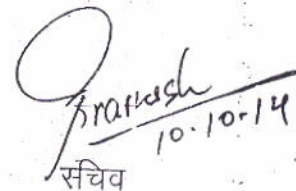 Prakash
10.10.14
सचिव